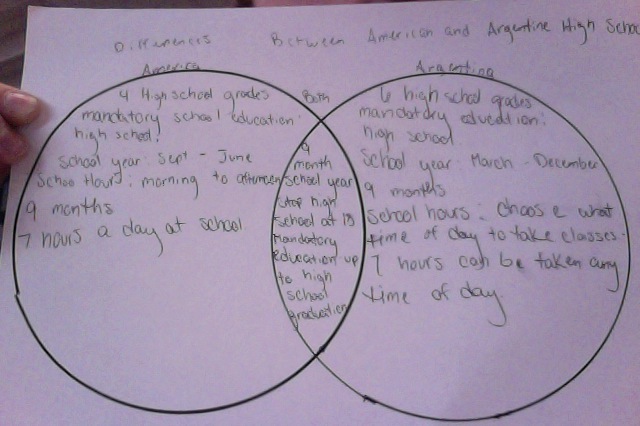 Differences Between American and Argentine High Schoo
America
Both
Argentina
4 High school grades
mandatory school education:
high school.
School year: Sept - June
School Hours: morning to afternoon
9 months
7 hours a day at school
9
month
school year
stop high
school at 18
mandatory
education up
to high
school
graduation
6 high school grades
mandatory education:
high school
School year: March - December
9 months
School hours: choose what
time of day to take classes.
7 hours can be taken any
time of day.